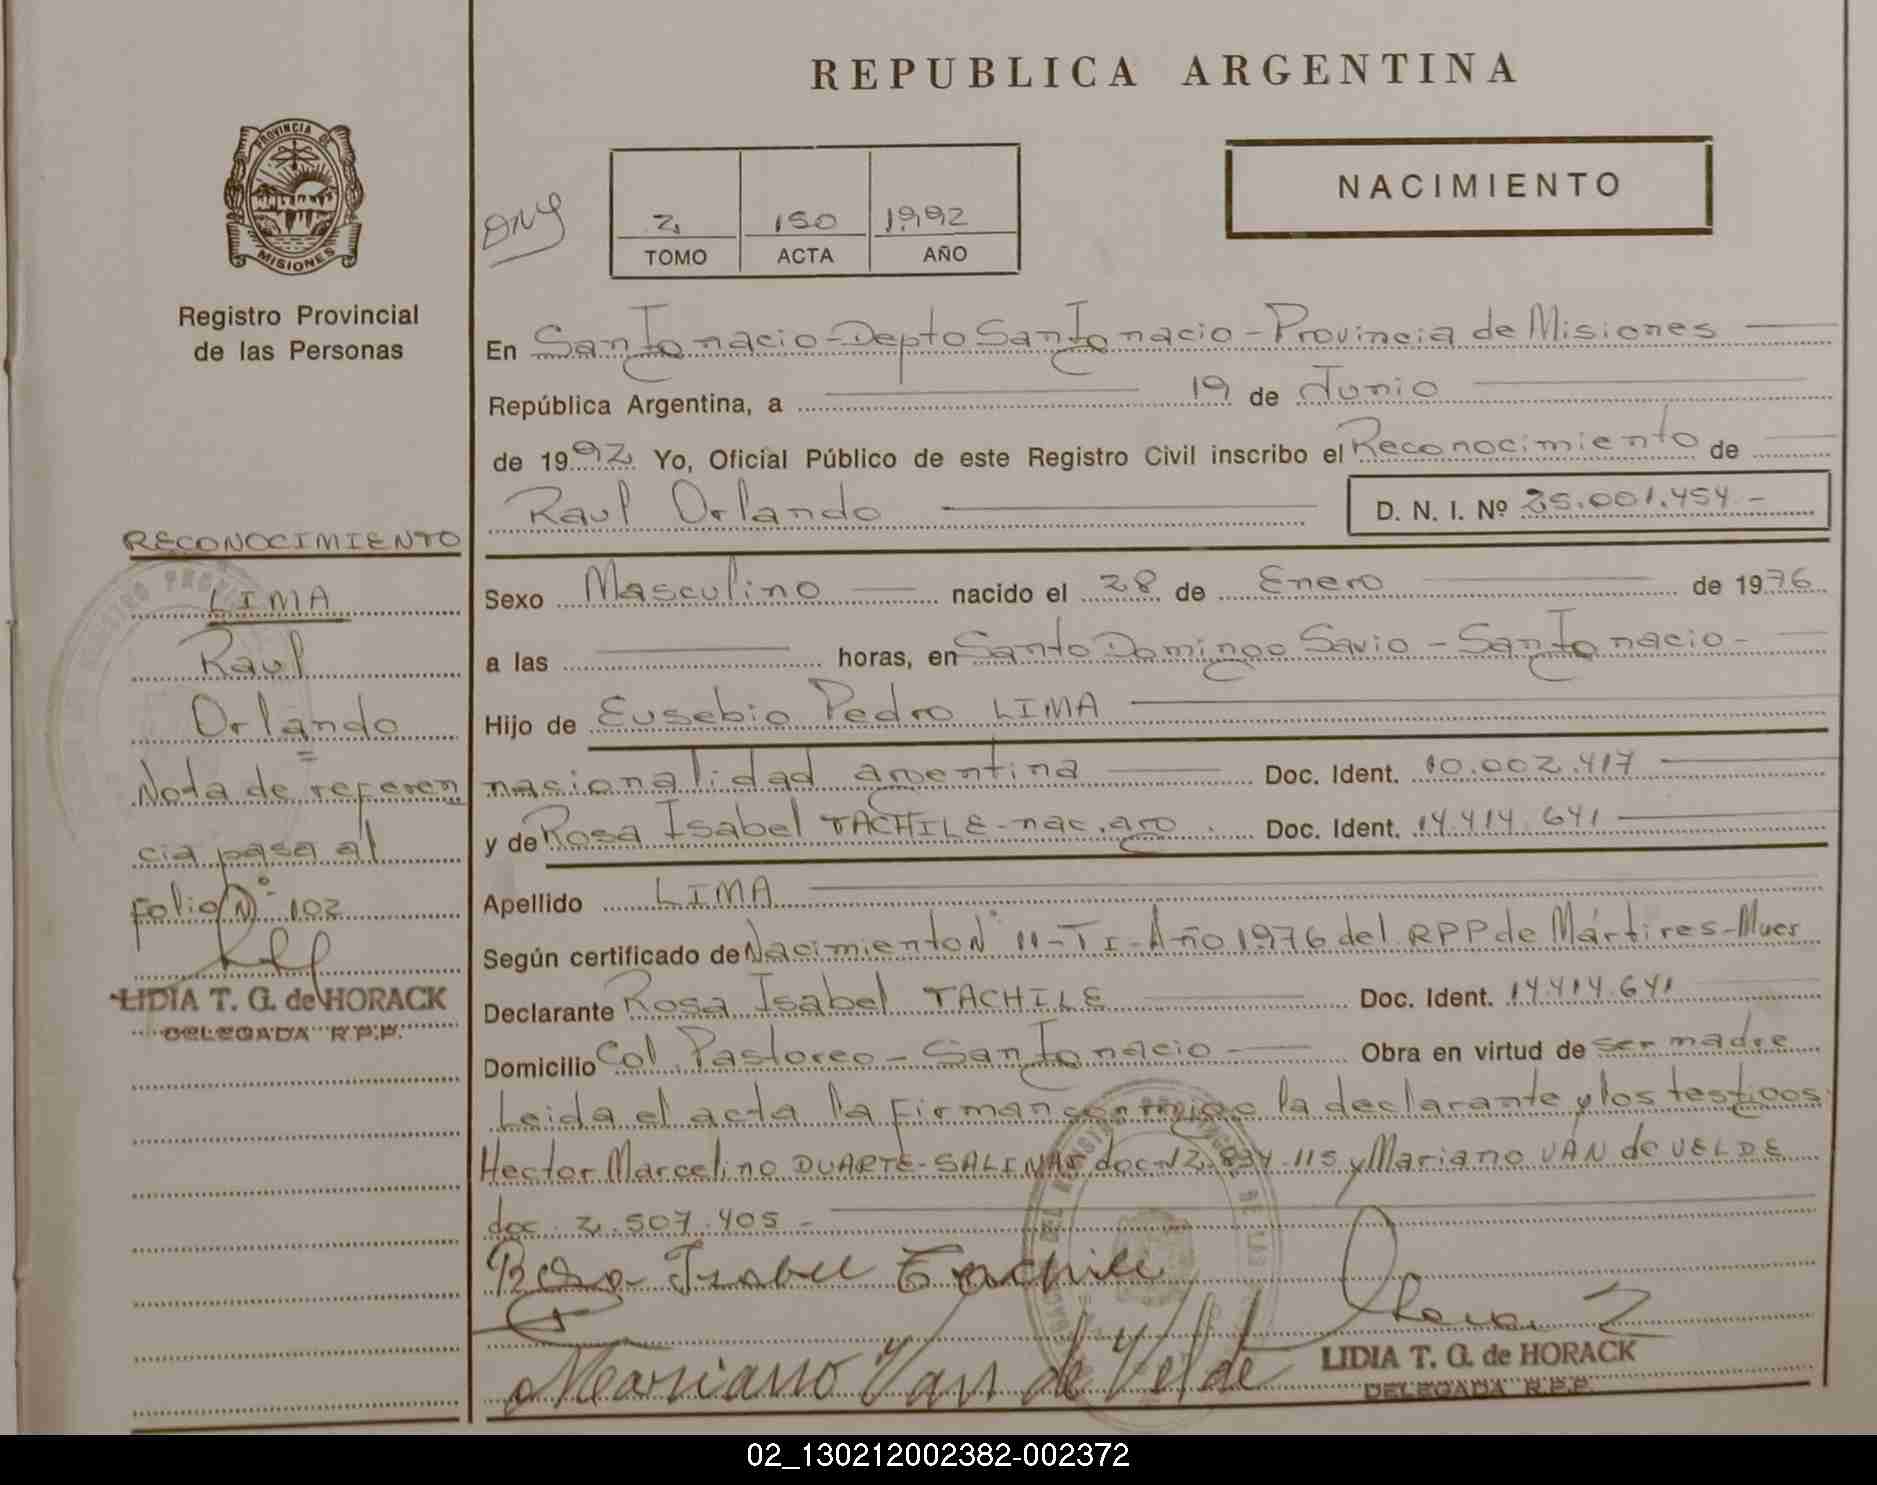 REPUBLICA ARGENTINA
PROVINCIA DE
MISIONES
Registro Provincial
de las Personas
NACIMIENTO
2 150 1992
TOMO ACTA AÑO
En San Ignacio - Depto San Ignacio - Provincia de Misiones
República Argentina, a 19 de Junio
de 1992 Yo, Oficial Público de este Registro Civil inscribo el Reconocimiento de
Raul Orlando D. N. I. Nº 25.001.454 -
Sexo Masculino nacido el 28 de Enero de 1976
a las horas, en Santo Domingo Savio - San Ignacio -
Hijo de Eusebio Pedro LIMA
nacionalidad argentina Doc. Ident. 10.002.417
y de Rosa Isabel TACHILE - nac. arg Doc. Ident. 14.414.641
Apellido LIMA
Según certificado de Nacimiento Nº 11 - T I - Año 1976 del RPP de Mártires - Mnes
Declarante Rosa Isabel TACHILE Doc. Ident. 14.414.641
Domicilio Col. Pastoreo - San Ignacio Obra en virtud de ser madre
Leida el acta la firman conmigo la declarante y los testigos
Hector Marcelino DUARTE - SALINAS doc. 12.834.115 y Mariano VAN de VELDE
doc. 2.507.405 -
Rosa Isabel Tachile
Mariano Van de Velde
LIDIA T. G. de HORACK
DELEGADA R.P.P.
RECONOCIMIENTO
LIMA
Raul
Orlando
Nota de referen
cia pasa al
folio Nº 102
LIDIA T. G. de HORACK
DELEGADA R.P.P.
02_130212002382-002372